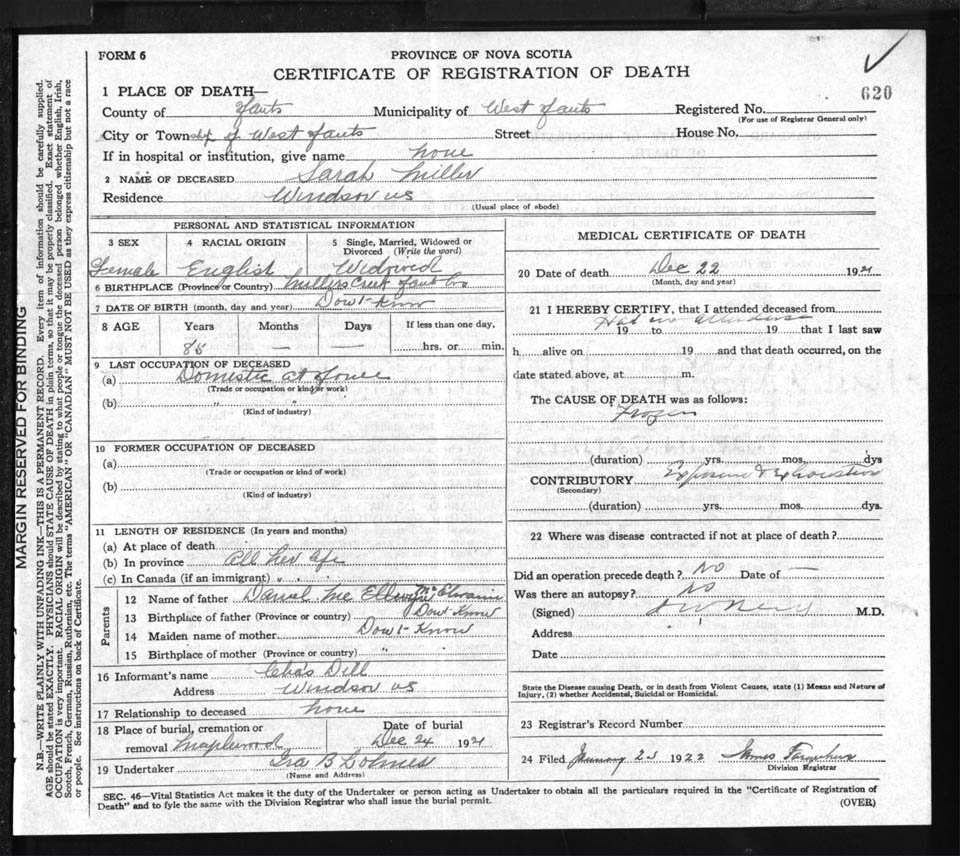 MARGIN RESERVED FOR BINDING
N.B.—WRITE PLAINLY WITH UNFADING INK—THIS IS A PERMANENT RECORD. Every item of information should be carefully supplied.
AGE should be stated EXACTLY. PHYSICIANS should STATE CAUSE OF DEATH in plain terms, so that it may be properly classified. Exact statement of
OCCUPATION is very important. RACIAL ORIGIN will be described by stating to what people or tongue the deceased person belonged whether English, Irish,
Scotch, French, German, Russian, Ruthenian, etc. The terms "AMERICAN" OR "CANADIAN" MUST NOT BE USED as they express citizenship but not a race
or people. See instructions on back of Certificate.
FORM 6
PROVINCE OF NOVA SCOTIA
CERTIFICATE OF REGISTRATION OF DEATH
620
1 PLACE OF DEATH—
County of Hants Municipality of West Hants Registered No.
(For use of Registrar General only)
City or Township of West Hants Street House No.
If in hospital or institution, give name none
2 NAME OF DECEASED Sarah Miller
Residence Windsor NS
(Usual place of abode)
PERSONAL AND STATISTICAL INFORMATION
3 SEX 4 RACIAL ORIGIN 5 Single, Married, Widowed or
Divorced (Write the word)
Female English Widowed
6 BIRTHPLACE (Province or Country) Millers Creek Hants Co
7 DATE OF BIRTH (month, day and year) Dont Know
8 AGE Years Months Days If less than one day,
88 — — hrs. or min.
9 LAST OCCUPATION OF DECEASED
(a) Domestic at Home
(Trade or occupation or kind of work)
(b) " "
(Kind of industry)
10 FORMER OCCUPATION OF DECEASED
(a)
(Trade or occupation or kind of work)
(b)
(Kind of industry)
11 LENGTH OF RESIDENCE (In years and months)
(a) At place of death
(b) In province All her life
(c) In Canada (if an immigrant) " "
Parents
12 Name of father Daniel McElwain
13 Birthplace of father (Province or country) Dont Know
14 Maiden name of mother Dont Know
15 Birthplace of mother (Province or country) "
16 Informant's name Chas Dill
Address Windsor NS
17 Relationship to deceased none
18 Place of burial, cremation or Date of burial
removal Maplewood Dec 24 1921
19 Undertaker Ira B Holmes
(Name and Address)
MEDICAL CERTIFICATE OF DEATH
20 Date of death Dec 22 1921
(Month, day and year)
21 I HEREBY CERTIFY, that I attended deceased from
Had no attendance
19 to 19 that I last saw
h alive on 19 and that death occurred, on the
date stated above, at m.
The CAUSE OF DEATH was as follows:
Frozen
(duration) yrs. mos. dys
CONTRIBUTORY Exposure & Exhaustion
(Secondary)
(duration) yrs. mos. dys.
22 Where was disease contracted if not at place of death?
Did an operation precede death? No Date of —
Was there an autopsy? No
(Signed) M.D.
Address
Date
State the Disease causing Death, or in death from Violent Causes, state (1) Means and Nature of
Injury, (2) whether Accidental, Suicidal or Homicidal.
23 Registrar's Record Number
24 Filed January 25 1922
Division Registrar
SEC. 46—Vital Statistics Act makes it the duty of the Undertaker or person acting as Undertaker to obtain all the particulars required in the "Certificate of Registration of
Death" and to fyle the same with the Division Registrar who shall issue the burial permit.
(OVER)